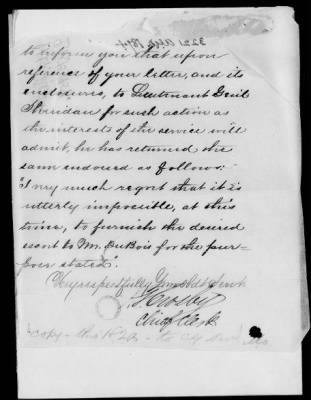 3221 1874
to inform you that upon
reference of your letter, and its
enclosures, to Lieutenant Genl
Sheridan for such action as
the interests of the service will
admit, he has returned the
same endorsed as follows:
"I very much regret that it is
utterly impossible, at this
time, to furnish the desired
escort to Mr. DuBois for the pur-
pose stated".
Very respectfully Your Obdt Servt
Crosby
Chief Clerk
copy - to